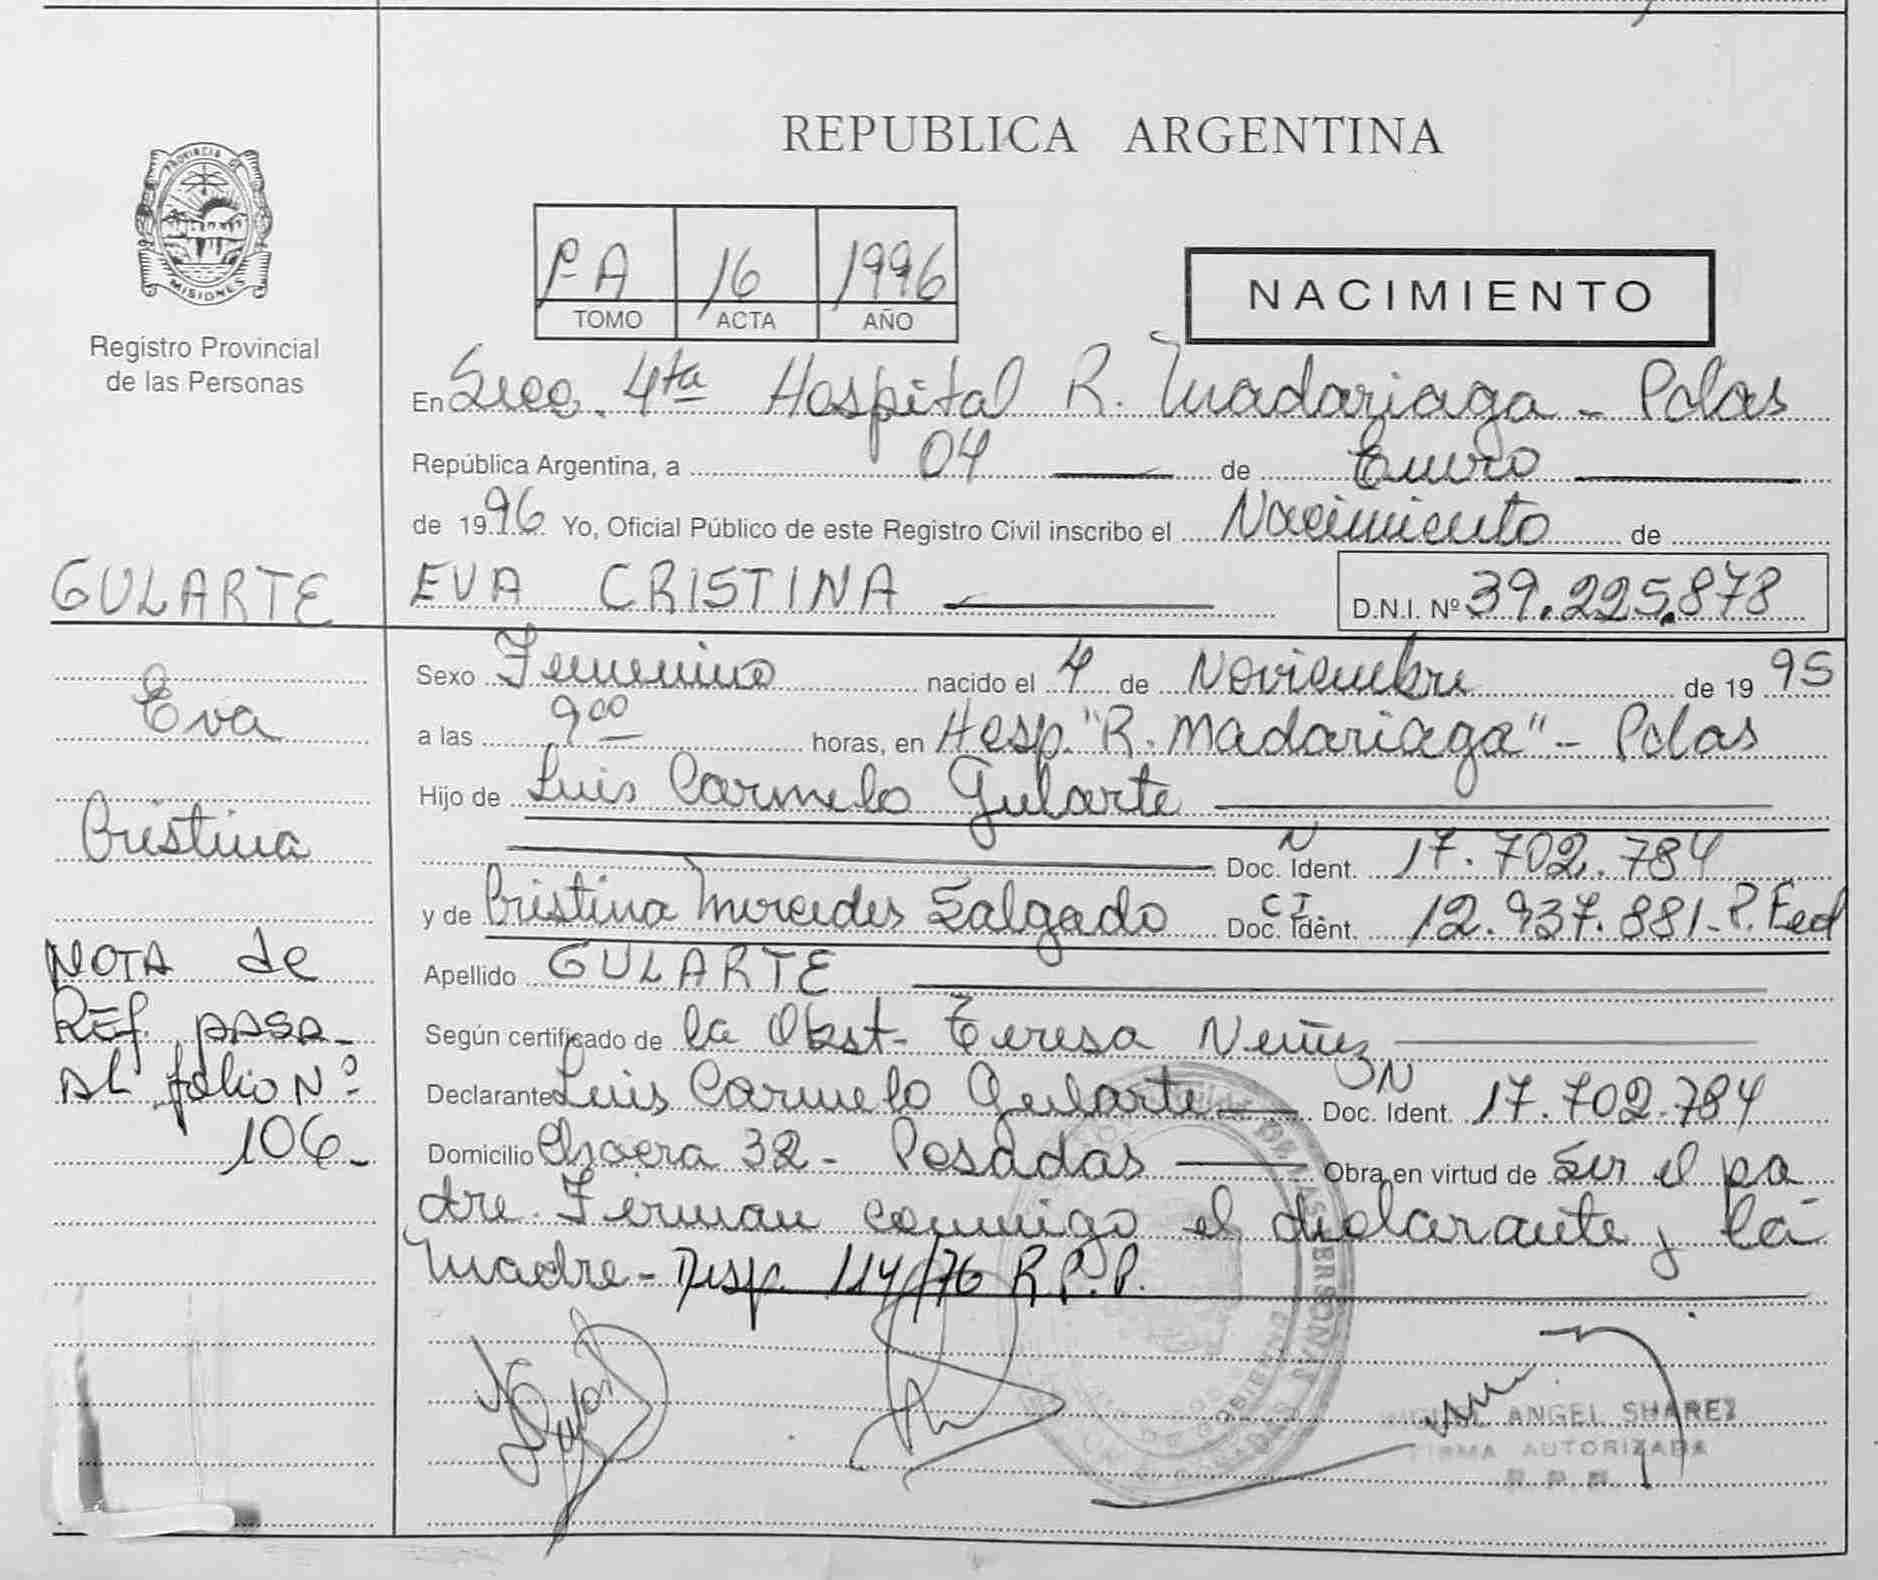 REPUBLICA ARGENTINA
PROVINCIA DE
MISIONES
Registro Provincial
de las Personas
1º A 16 1996
TOMO ACTA AÑO
NACIMIENTO
En Secc. 4ta Hospital R. Madariaga - Pdas
República Argentina, a 04 de Enero
de 1996 Yo, Oficial Público de este Registro Civil inscribo el Nacimiento de
GULARTE EVA CRISTINA D.N.I. Nº 39.225.878
Eva
Cristina
NOTA de
REF. PASA
AL folio Nº
106-
Sexo Femenino nacido el 4 de Noviembre de 1995
a las 9 00 horas, en Hosp. "R. Madariaga" - Pdas
Hijo de Luis Carmelo Gularte
Doc. Ident. 17.702.784
y de Cristina Mercedes Salgado C.I. Doc. Ident. 12.937.881-P. Fed
Apellido GULARTE
Según certificado de la Obst. Teresa Nuñez
Declarante Luis Carmelo Gularte DN Doc. Ident. 17.702.784
Domicilio Chacra 32 - Posadas Obra en virtud de Ser el pa
dre. Firman conmigo el declarante y la
Madre - Disp. 114/76 R.P.P.
ANGEL SUAREZ
FIRMA AUTORIZADA